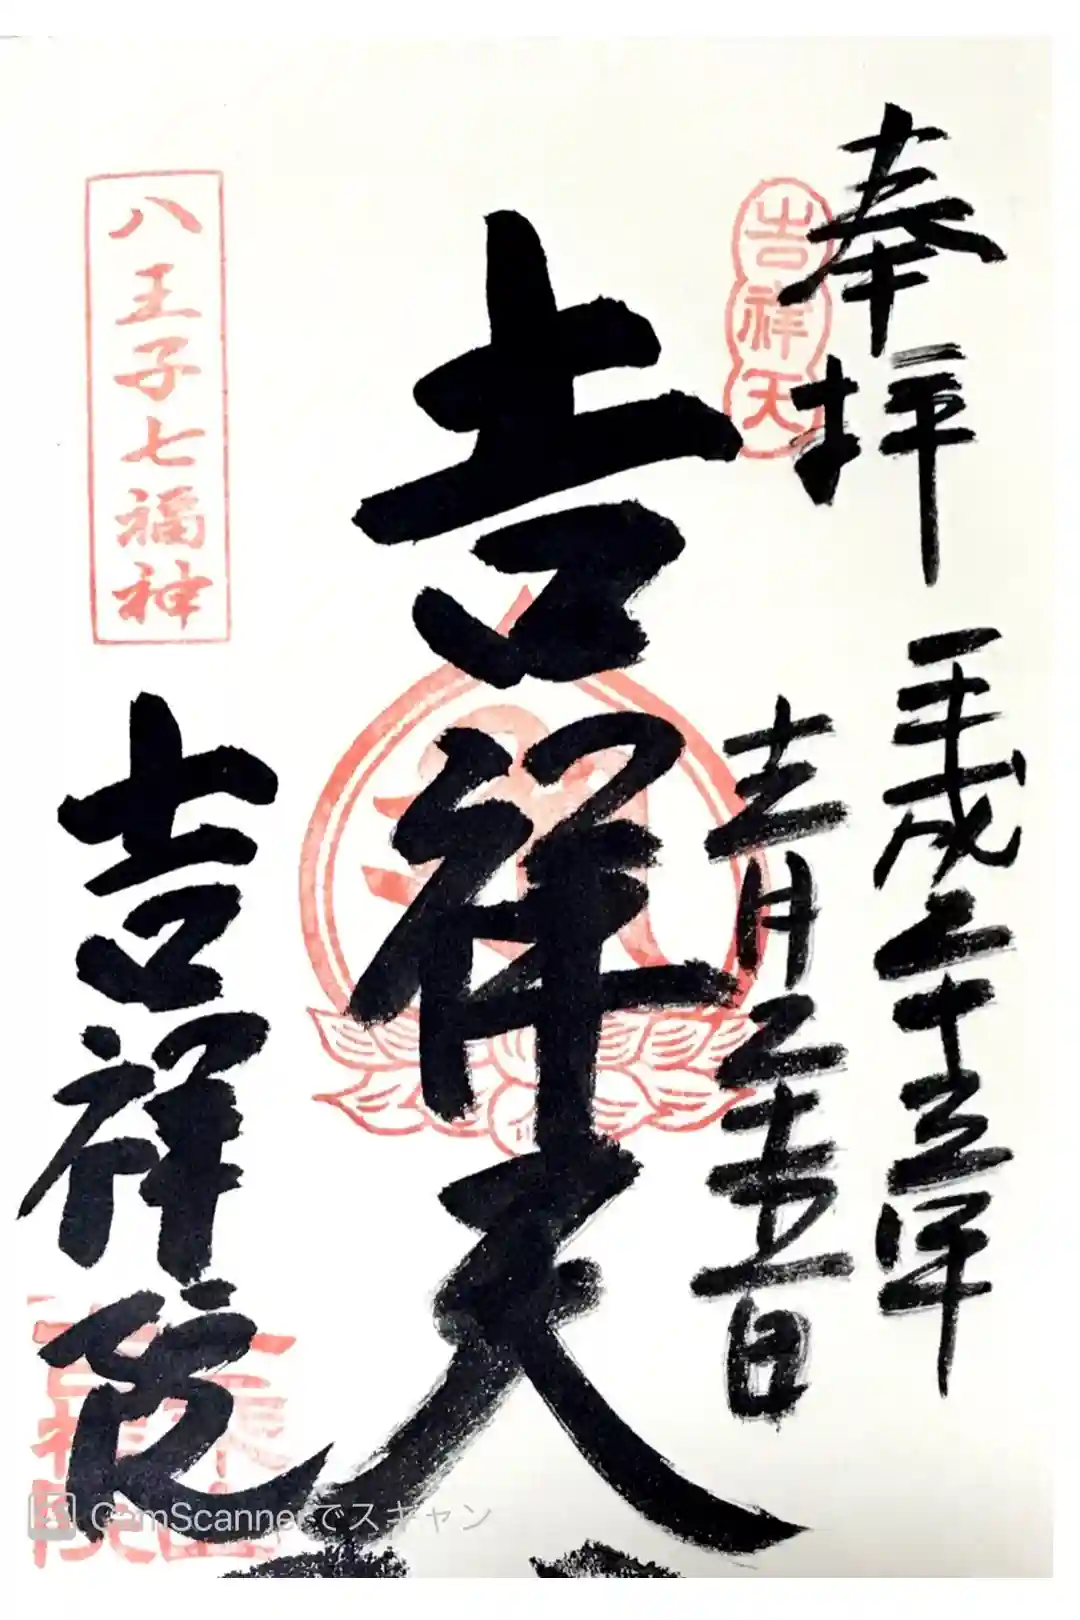 奉拝 平成二十五年
月二十五日
吉祥天
吉祥天
八王子七福神
吉祥院
CamScannerでスキャン